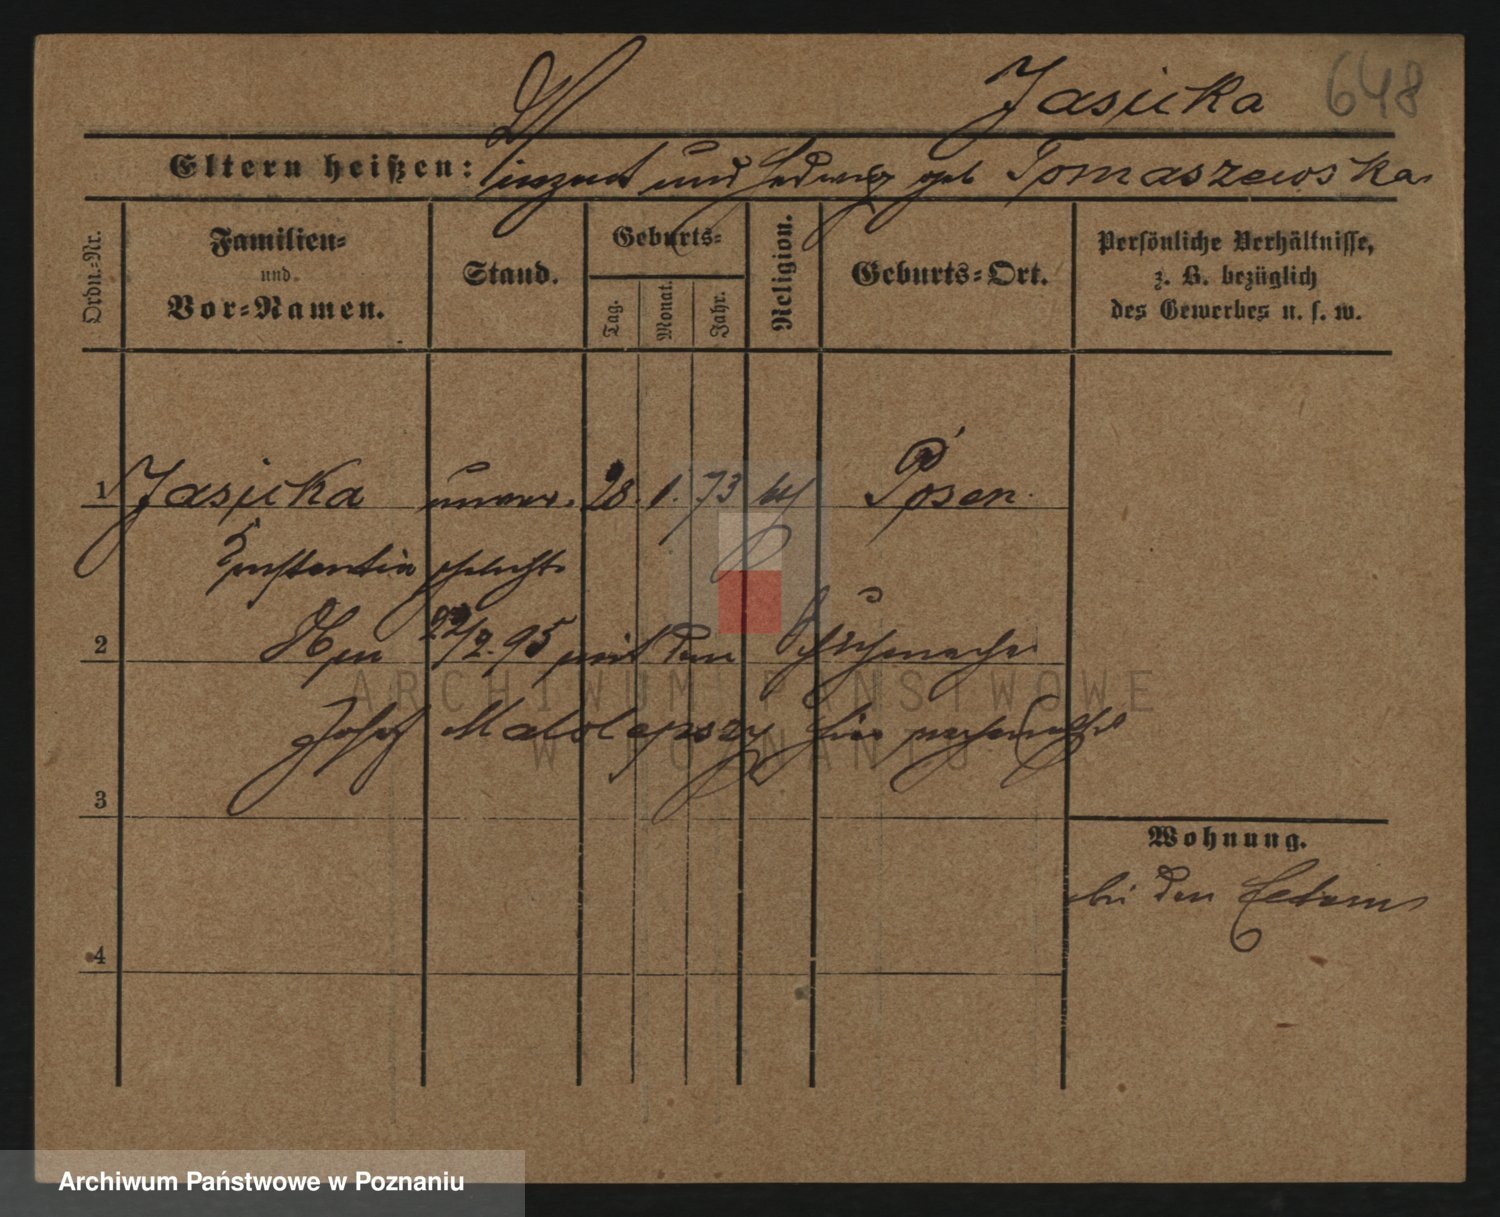 Jasicka 648
Eltern heißen: Vinzent und Hedwig geb Tomaszewska
Ordn.-Nr.
Familien-
und
Vor-Namen.
Stand.
Geburts-
Tag.
Monat.
Jahr.
Religion.
Geburts-Ort.
Persönliche Verhältnisse,
z. B. bezüglich
des Gewerbes u. s. w.
1 Jasicka unver. 28. 1. 73 Posen
Konstantia ehelicht
2 22/2. 95 mit dem Schuhmacher
Josef Malolepszy hier
3
Wohnung.
bei den Eltern
4
ARCHIWUM PAŃSTWOWE
W POZNANIU
Archiwum Państwowe w Poznaniu